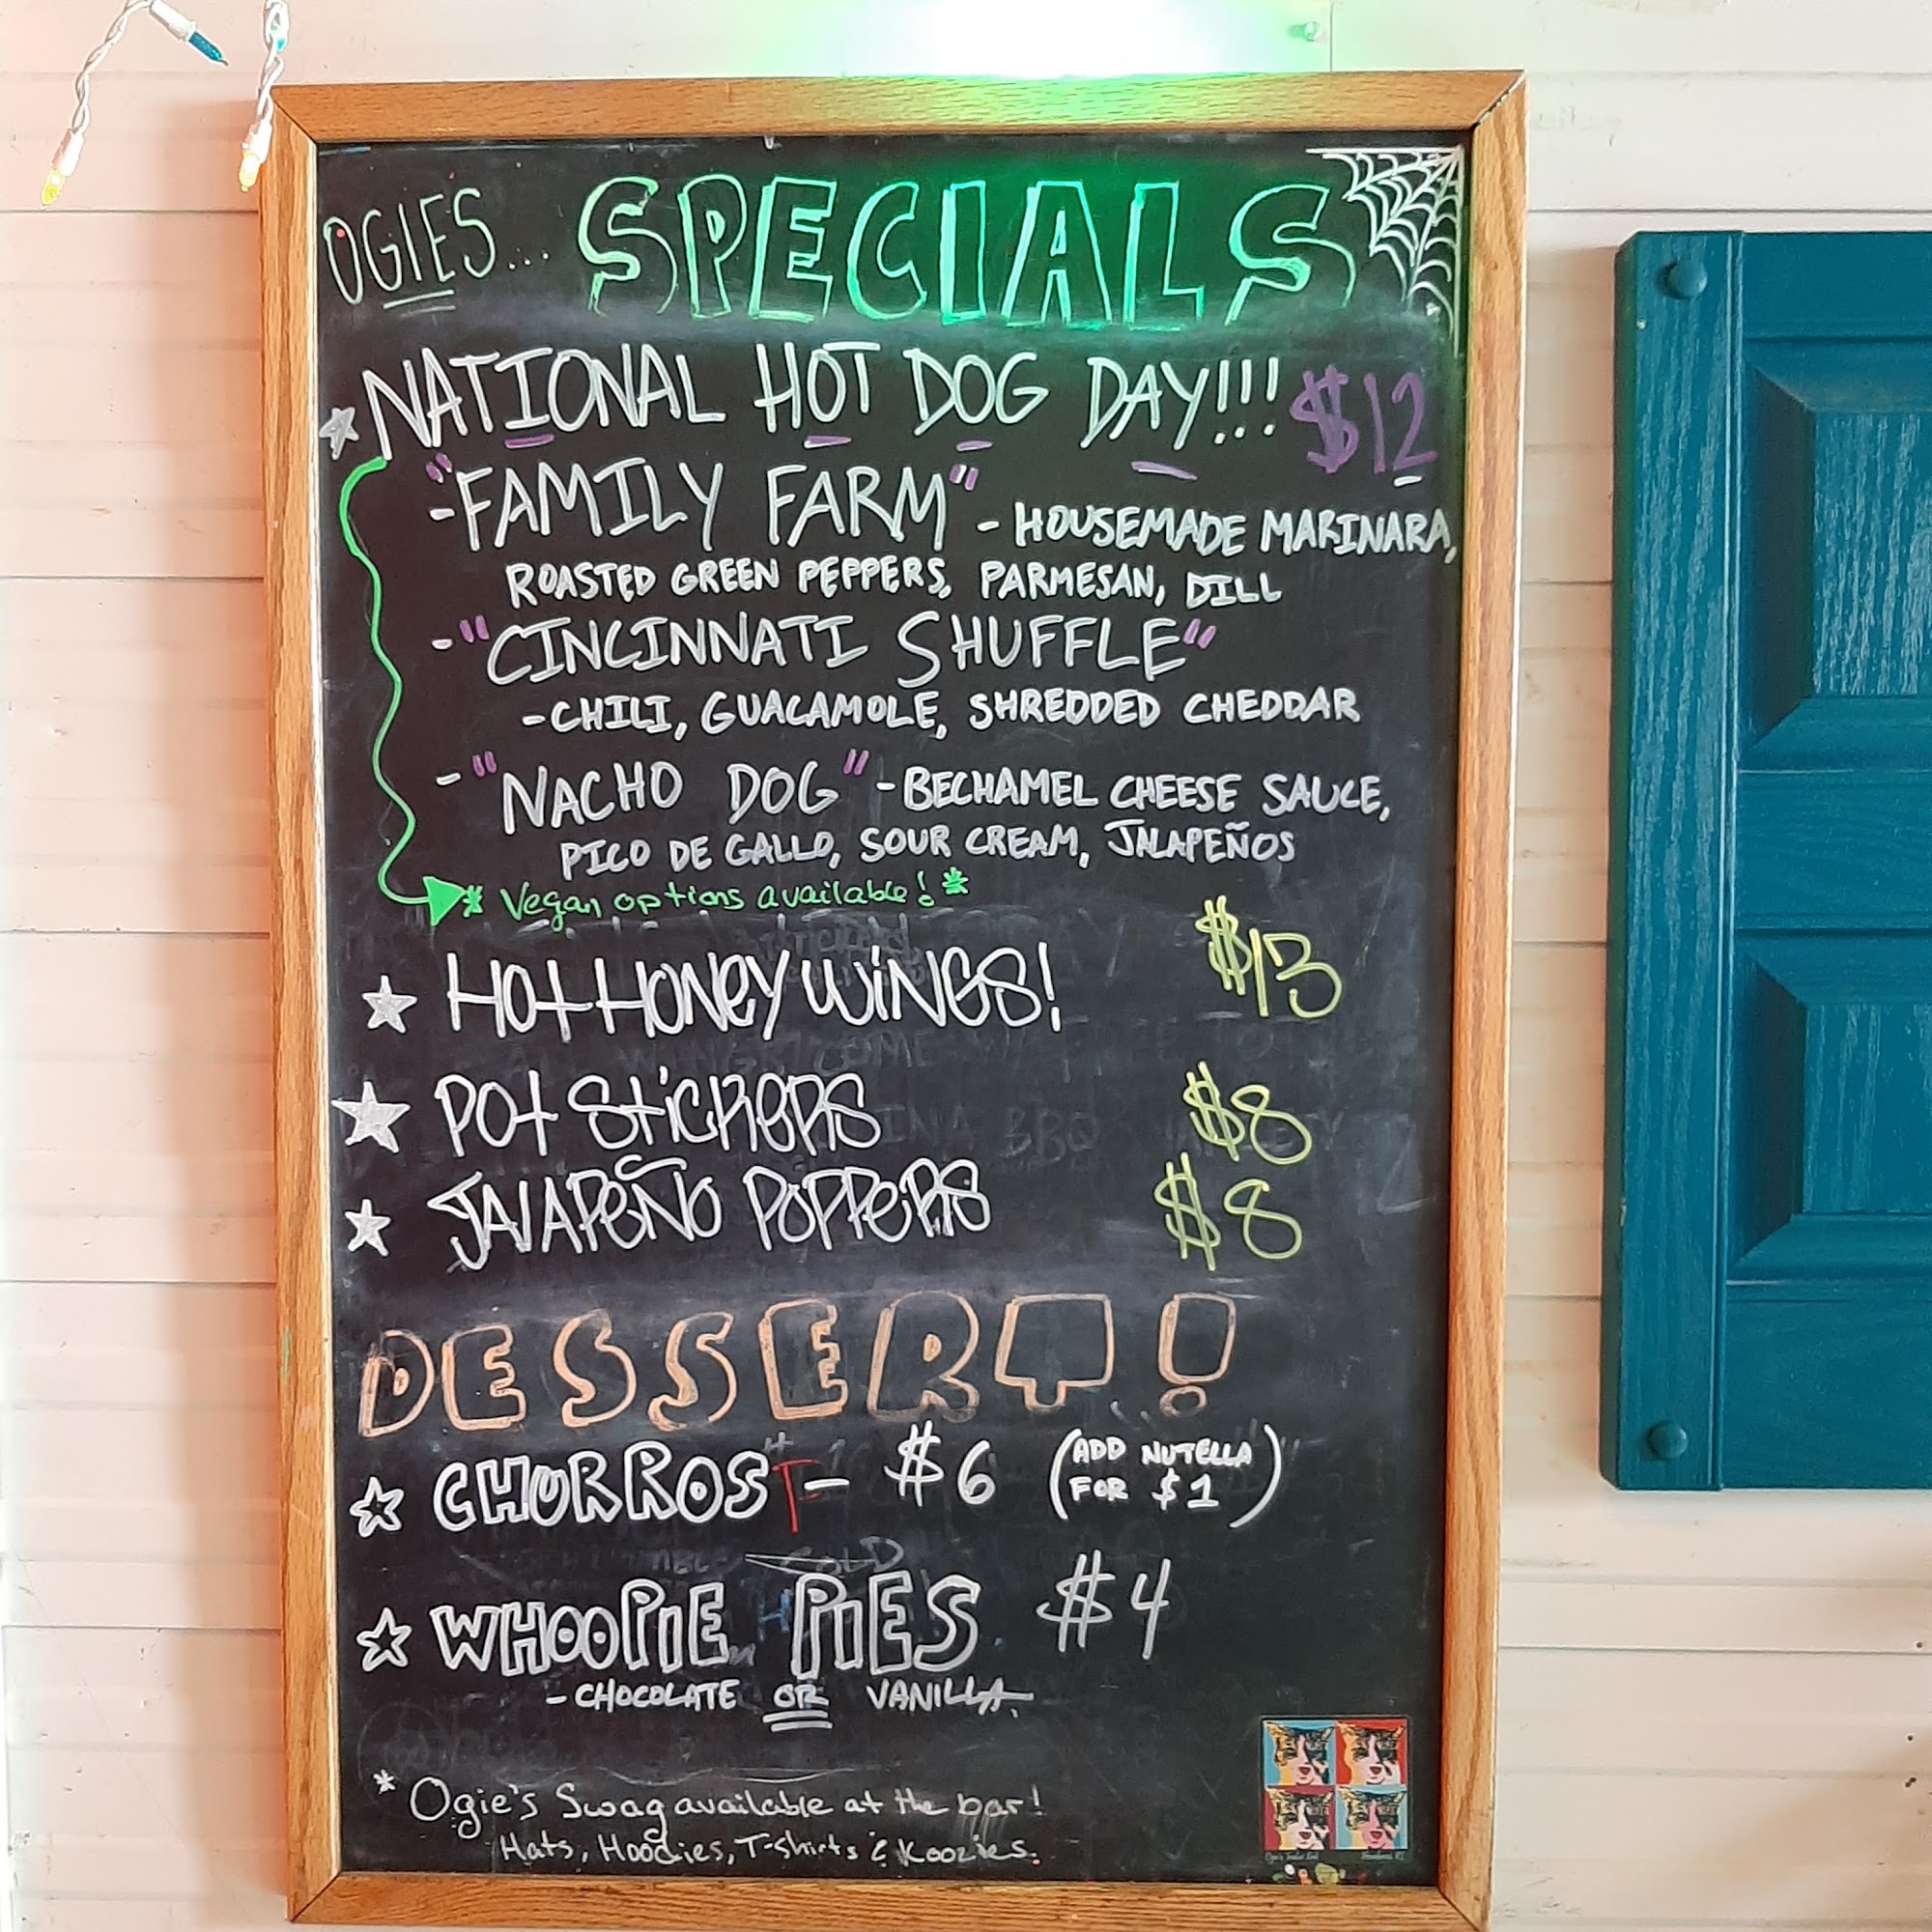 OGIES... SPECIALS
NATIONAL HOT DOG DAY!!! $12
-"FAMILY FARM" - HOUSEMADE MARINARA,
ROASTED GREEN PEPPERS, PARMESAN, DILL
-"CINCINNATI SHUFFLE"
-CHILI, GUACAMOLE, SHREDDED CHEDDAR
-"NACHO DOG" -BECHAMEL CHEESE SAUCE,
PICO DE GALLO, SOUR CREAM, JALAPEÑOS
* Vegan options available! *
HOt HONEY WiNGS! $13
POt StiCKERS $8
JALAPEÑO POPPERS $8
DESSERT!
CHURROS - $6 (ADD NUTELLA
FOR $1)
WHOOPIE PIES $4
-CHOCOLATE OR VANILLA.
* Ogie's Swag available at the bar!
Hats, Hoodies, T-shirts & Koozies.